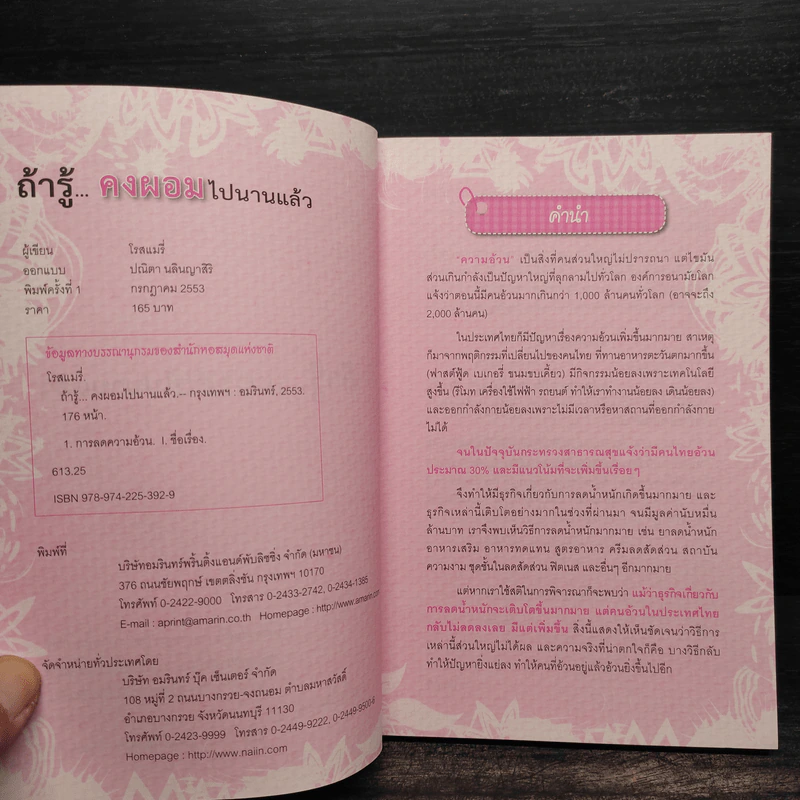 ถ้ารู้... คงผอมไปนานแล้ว
ผู้เขียน โรสแมรี่
ออกแบบ ปณิตา นลินญาสิริ
พิมพ์ครั้งที่ 1 กรกฎาคม 2553
ราคา 165 บาท
ข้อมูลทางบรรณานุกรมของสำนักหอสมุดแห่งชาติ
โรสแมรี่.
ถ้ารู้... คงผอมไปนานแล้ว.-- กรุงเทพฯ : อมรินทร์, 2553.
176 หน้า.
1. การลดความอ้วน. I. ชื่อเรื่อง.
613.25
ISBN 978-974-225-392-9
พิมพ์ที่
บริษัทอมรินทร์พริ้นติ้งแอนด์พับลิชชิ่ง จำกัด (มหาชน)
376 ถนนชัยพฤกษ์ เขตตลิ่งชัน กรุงเทพฯ 10170
โทรศัพท์ 0-2422-9000 โทรสาร 0-2433-2742, 0-2434-1385
E-mail : aprint@amarin.co.th Homepage : http://www.amarin.com
จัดจำหน่ายทั่วประเทศโดย
บริษัท อมรินทร์ บุ๊ค เซ็นเตอร์ จำกัด
108 หมู่ที่ 2 ถนนบางกรวย-จงถนอม ตำบลมหาสวัสดิ์
อำเภอบางกรวย จังหวัดนนทบุรี 11130
โทรศัพท์ 0-2423-9999 โทรสาร 0-2449-9222, 0-2449-9500-6
Homepage : http://www.naiin.com
คำนำ
"ความอ้วน" เป็นสิ่งที่คนส่วนใหญ่ไม่ปรารถนา แต่ไขมัน
ส่วนเกินกำลังเป็นปัญหาใหญ่ที่ลุกลามไปทั่วโลก องค์การอนามัยโลก
แจ้งว่าตอนนี้มีคนอ้วนมากเกินกว่า 1,000 ล้านคนทั่วโลก (อาจจะถึง
2,000 ล้านคน)
ในประเทศไทยก็มีปัญหาเรื่องความอ้วนเพิ่มขึ้นมากมาย สาเหตุ
ก็มาจากพฤติกรรมที่เปลี่ยนไปของคนไทย ที่ทานอาหารตะวันตกมากขึ้น
(ฟาสต์ฟู้ด เบเกอรี่ ขนมขบเคี้ยว) มีกิจกรรมน้อยลงเพราะเทคโนโลยี
สูงขึ้น (รีโมท เครื่องใช้ไฟฟ้า รถยนต์ ทำให้เราทำงานน้อยลง เดินน้อยลง)
และออกกำลังกายน้อยลงเพราะไม่มีเวลาหรือหาสถานที่ออกกำลังกาย
ไม่ได้
จนในปัจจุบันกระทรวงสาธารณสุขแจ้งว่ามีคนไทยอ้วน
ประมาณ 30% และมีแนวโน้มที่จะเพิ่มขึ้นเรื่อยๆ
จึงทำให้มีธุรกิจเกี่ยวกับการลดน้ำหนักเกิดขึ้นมากมาย และ
ธุรกิจเหล่านี้เติบโตอย่างมากในช่วงที่ผ่านมา จนมีมูลค่านับหมื่น
ล้านบาท เราจึงพบเห็นวิธีการลดน้ำหนักมากมาย เช่น ยาลดน้ำหนัก
อาหารเสริม อาหารทดแทน สูตรอาหาร ครีมลดสัดส่วน สถาบัน
ความงาม ชุดชั้นในลดสัดส่วน ฟิตเนส และอื่นๆ อีกมากมาย
แต่หากเราใช้สติในการพิจารณาก็จะพบว่า แม้ว่าธุรกิจเกี่ยวกับ
การลดน้ำหนักจะเติบโตขึ้นมากมาย แต่คนอ้วนในประเทศไทย
กลับไม่ลดลงเลย มีแต่เพิ่มขึ้น สิ่งนี้แสดงให้เห็นชัดเจนว่าวิธีการ
เหล่านี้ส่วนใหญ่ไม่ได้ผล และความจริงที่น่าตกใจก็คือ บางวิธีกลับ
ทำให้ปัญหายิ่งแย่ลง ทำให้คนที่อ้วนอยู่แล้วอ้วนยิ่งขึ้นไปอีก